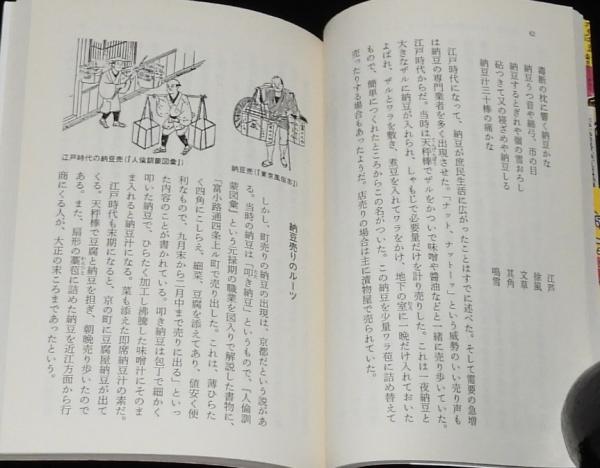 62
毒断の枕に響く納豆かな
納豆うつ音や梅弓、市の日
納豆するとぎれや嶺の雪おろし
砧つきて又の寝ざめや納豆しる
納豆汁三十棒の痛かな
江戸
徐風
文草
其角
鳴雪
江戸時代になって、納豆が庶民生活に広がったことはすでに述べた。そして需要の急増
は納豆の専門業者を多く出現させた。「ナット、ナットーッ」という威勢のいい売り声も
江戸時代からだ。当時は天秤棒でザルをかついで味噌や醬油などと一緒に売り歩いていた。
大きなザルに納豆が入れられ、しゃもじで必要量だけを計り売りした。これは一夜納豆と
よばれ、ザルとワラを敷き、煮豆を入れてワラをかけ、地下の室に一晩だけ入れておいた
もので、簡単につくれたところからこの名がついた。この納豆を少量ワラ苞に詰め替えて
売ったりする場合もあったようだ。店売りの場合は主に漬物屋で売られていた。
納豆売り(『東京風俗志』)
江戸時代の納豆売(『人倫訓蒙図彙』)
納豆売りのルーツ
しかし、町売りの納豆の出現は、京都だという説があ
る。当時の納豆は「叩き納豆」というもので、『人倫訓
蒙図彙』という元禄期の職業を図入りで解説した書物に、
「富小路通四条上ル町で売り出した。これは、薄ひらた
く四角にこしらえ、細菜、豆腐を添えてあり、値安く便
利なもので、九月末から二月中まで売りに出る」といっ
た内容のことが書かれている。叩き納豆は包丁で細かく
叩いた納豆で、ひらたく加工し沸騰した味噌汁にそのま
ま入れると納豆汁になる。菜も添えた即席納豆汁の素だ。
江戸時代も末期になると、京の町に豆腐屋納豆が出て
くる。天秤棒で豆腐と納豆を担ぎ、朝晩売り歩いたので
ある。また、扇形の藁苞に詰めた納豆を近江方面から行
商にくる人が、大正の末ころまであったという。